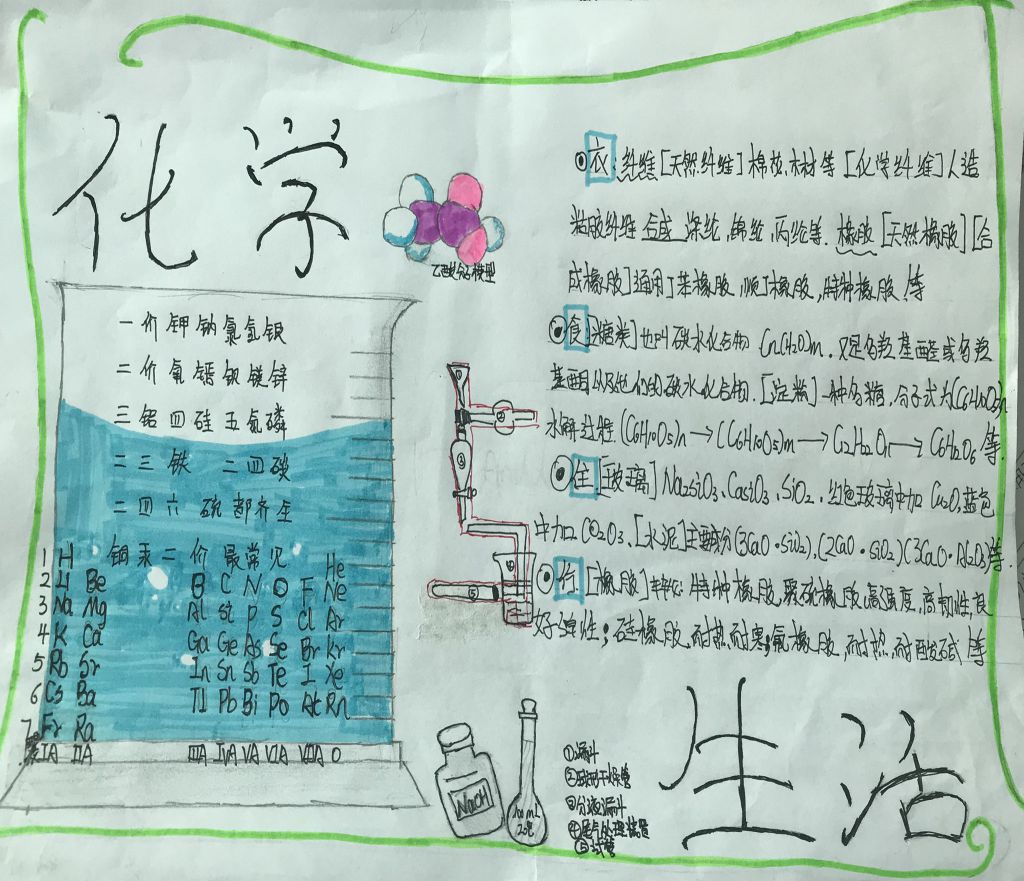 化学
乙酸分子模型
一价钾钠氯氢银
二价氧钙钡镁锌
三铝四硅五氮磷
二三铁 二四碳
二四六硫都齐全
铜汞二价最常见
1 H He
2 Li Be B C N O F Ne
3 Na Mg Al Si P S Cl Ar
4 K Ca Ga Ge As Se Br Kr
5 Rb Sr In Sn Sb Te I Xe
6 Cs Ba Tl Pb Bi Po At Rn
7 Fr Ra
IA IIA IIIA IVA VA VIA VIIA 0
衣:纤维[天然纤维]棉花,木材等[化学纤维]人造
粘胶纤维 合成 涤纶,锦纶,丙纶等. 橡胶[天然橡胶][合
成橡胶]通用丁苯橡胶,顺丁橡胶,特种橡胶 等
食[糖类]也叫碳水化合物 Cn(H2O)m. 又是多羟基醛或多羟
基酮以及他们的碳水化合物.[淀粉]一种多糖,分子式为(C6H10O5)n
水解过程(C6H10O5)n→(C6H10O5)m→C12H22O11→C6H12O6等.
住[玻璃]Na2SiO3、CaSiO3、SiO2. 红色玻璃中加Cu2O,蓝色
中加Co2O3、[水泥]主要成分(3CaO·SiO2),(2CaO·SiO2)(3CaO·Al2O3)等.
行[橡胶]特种橡胶,聚硫橡胶,高强度,高韧性,良
好弹性;硅橡胶,耐热,耐寒;氟橡胶,耐热,耐酸碱等
① ② ③ ④ ⑤
NaOH
100mL
20℃
①漏斗
②球形干燥管
③分液漏斗
④尾气处理装置
⑤试管
生活